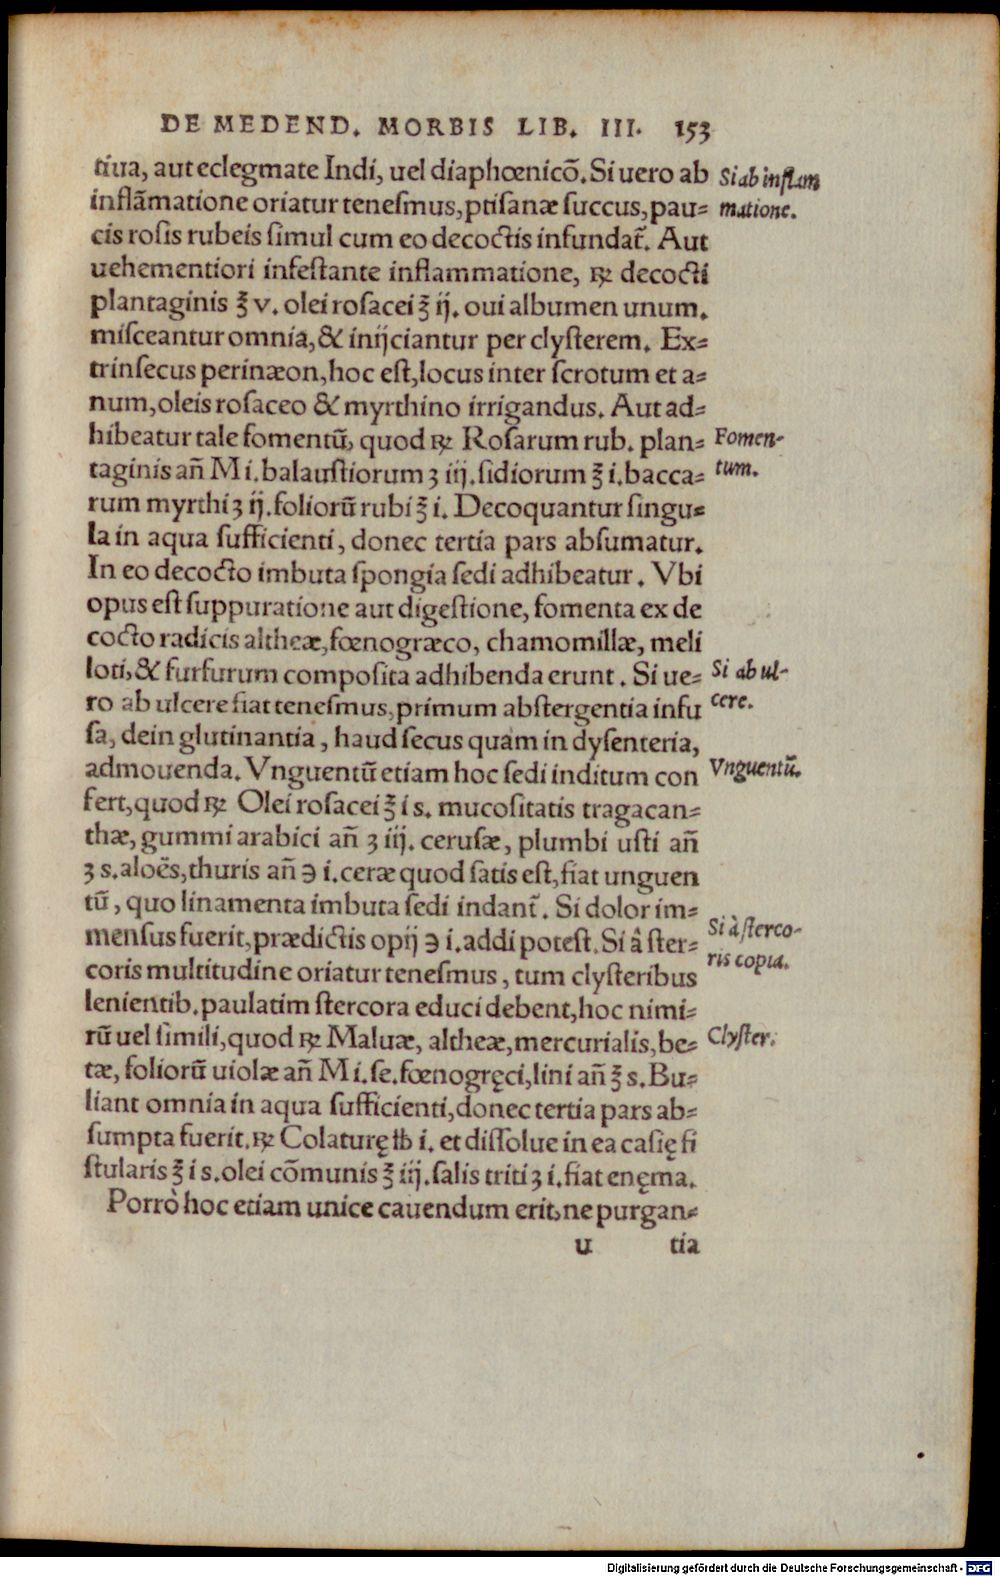 DE MEDEND. MORBIS LIB. III. 153
tiua, aut eclegmate Indi, uel diaphœnicō. Si uero ab
Si ab inflam
inflāmatione oriatur teneſmus, ptiſanæ ſuccus, pau=
matione.
cis roſis rubeis ſimul cum eo decoctis infundat̃. Aut
uehementiori infeſtante inflammatione, ℞ decocti
plantaginis ℥ v. olei roſacei ℥ ij. oui albumen unum.
miſceantur omnia, & inijciantur per clyſterem. Ex=
trinſecus perinæon, hoc eſt, locus inter ſcrotum et a=
num, oleis roſaceo & myrthino irrigandus. Aut ad=
hibeatur tale fomentū, quod ℞ Roſarum rub. plan=
Fomen-
taginis añ M i. balauſtiorum ʒ iij. ſidiorum ℥ i. bacca=
tum.
rum myrthi ʒ ij. foliorū rubi ℥ i. Decoquantur ſingu=
la in aqua ſufficienti, donec tertia pars abſumatur.
In eo decocto imbuta ſpongia ſedi adhibeatur. Vbi
opus eſt ſuppuratione aut digeſtione, fomenta ex de
cocto radicis altheæ, fœnogræco, chamomillæ, meli
loti, & furfurum compoſita adhibenda erunt. Si ue=
Si ab ul-
ro ab ulcere fiat teneſmus, primum abſtergentia infu
cere.
ſa, dein glutinantia, haud ſecus quàm in dyſenteria,
admouenda. Vnguentū etiam hoc ſedi inditum con
Vnguentū.
fert, quod ℞ Olei roſacei ℥ i s. mucoſitatis tragacan=
thæ, gummi arabici añ ʒ iij. ceruſæ, plumbi uſti añ
ʒ s. aloës, thuris añ ℈ i. ceræ quod ſatis eſt, fiat unguen
tū, quo linamenta imbuta ſedi indant̃. Si dolor im=
menſus fuerit, prædictis opij ℈ i. addi poteſt. Si â ſter=
Si à ſterco-
coris multitudine oriatur teneſmus, tum clyſteribus
ris copia.
lenientib. paulatim ſtercora educi debent, hoc nimi=
rū uel ſimili, quod ℞ Maluæ, altheæ, mercurialis, be=
Clyſter.
tæ, foliorū uiolæ añ M i. ſe. fœnogręci, lini añ ℥ s. Bu=
liant omnia in aqua ſufficienti, donec tertia pars ab=
ſumpta fuerit. ℞ Colaturę ℔ i. et diſſolue in ea caſię fi
ſtularis ℥ i s. olei cōmunis ℥ iij. ſalis triti ʒ i. fiat enęma.
Porrò hoc etiam unice cauendum erit, ne purgan=
u tia
Digitalisierung gefördert durch die Deutsche Forschungsgemeinschaft - DFG